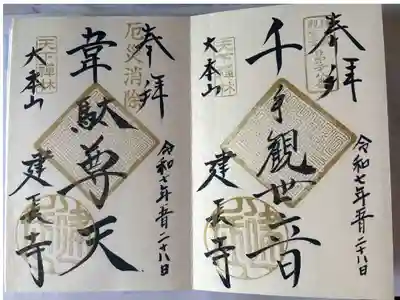 奉拝
千手観世音
天下禅林
大本山
建長寺
令和七年一月二十八日
奉拝
厄災消除
韋駄尊天
天下禅林
大本山
建長寺
令和七年一月二十八日